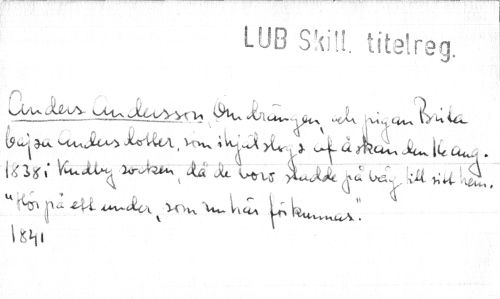 LUB Skill. titelreg.
Anders Andersson, Om drängen, och pigan Brita
Cajsa Andersdotter, som ihjälslogs af åskan den 14 aug.
1838 i Kudby socken, då de voro stadde på väg till sitt hem.
"Hör på ett under, som nu här förkunnas".
1841